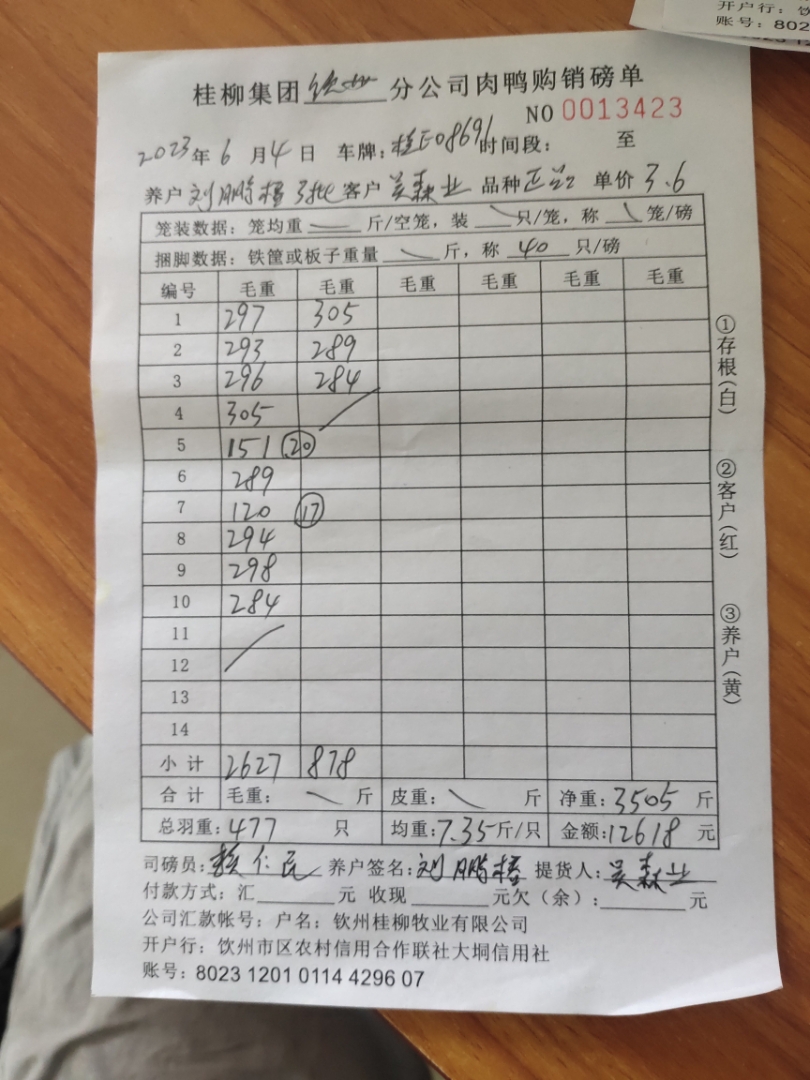 开户行：饮
账号：802
桂柳集团钦州分公司肉鸭购销磅单
NO 0013423
2023年6月4日 车牌：桂E08691时间段： 至
养户刘鹏 3批 客户吴森业 品种正品 单价3.6
笼装数据：笼均重 斤/空笼，装 只/笼，称 笼/磅
捆脚数据：铁筐或板子重量 斤，称 40 只/磅
编号 毛重 毛重 毛重 毛重 毛重 毛重
1 297 305
2 293 289
3 296 284
4 305
5 151 20
6 289
7 120 17
8 294
9 298
10 284
11
12
13
14
小计 2627 878
合计 毛重： 斤 皮重： 斤 净重：3505 斤
总羽重：477 只 均重：7.35斤/只 金额：12618元
司磅员：仁民 养户签名：刘鹏 提货人：吴森业
付款方式：汇 元 收现 元欠（余）： 元
公司汇款帐号：户名：钦州桂柳牧业有限公司
开户行：饮州市区农村信用合作联社大垌信用社
账号：8023 1201 0114 4296 07
①存根(白)
②客户(红)
③养户(黄)